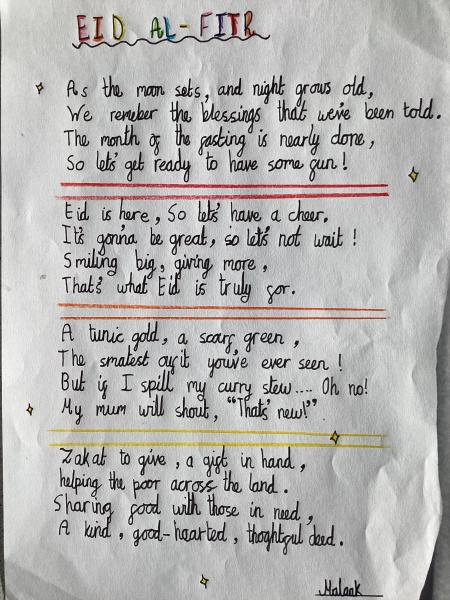 EID AL-FITR
As the moon sets, and night grows old,
We remeber the blessings that we've been told.
The month of the fasting is nearly done,
So lets' get ready to have some fun!
Eid is here, So lets' have a cheer.
It's gonna be great, so let's not wait!
Smiling big, giving more,
That's what Eid is truly for.
A tunic gold, a scarf green,
The smatest oufit you've ever seen!
But if I spill my curry stew.... Oh no!
My mum will shout, "That's new!"
Zakat to give, a gift in hand,
helping the poor across the land.
Sharing food with those in need,
A kind, good-hearted, thoghtful deed.
Malaak